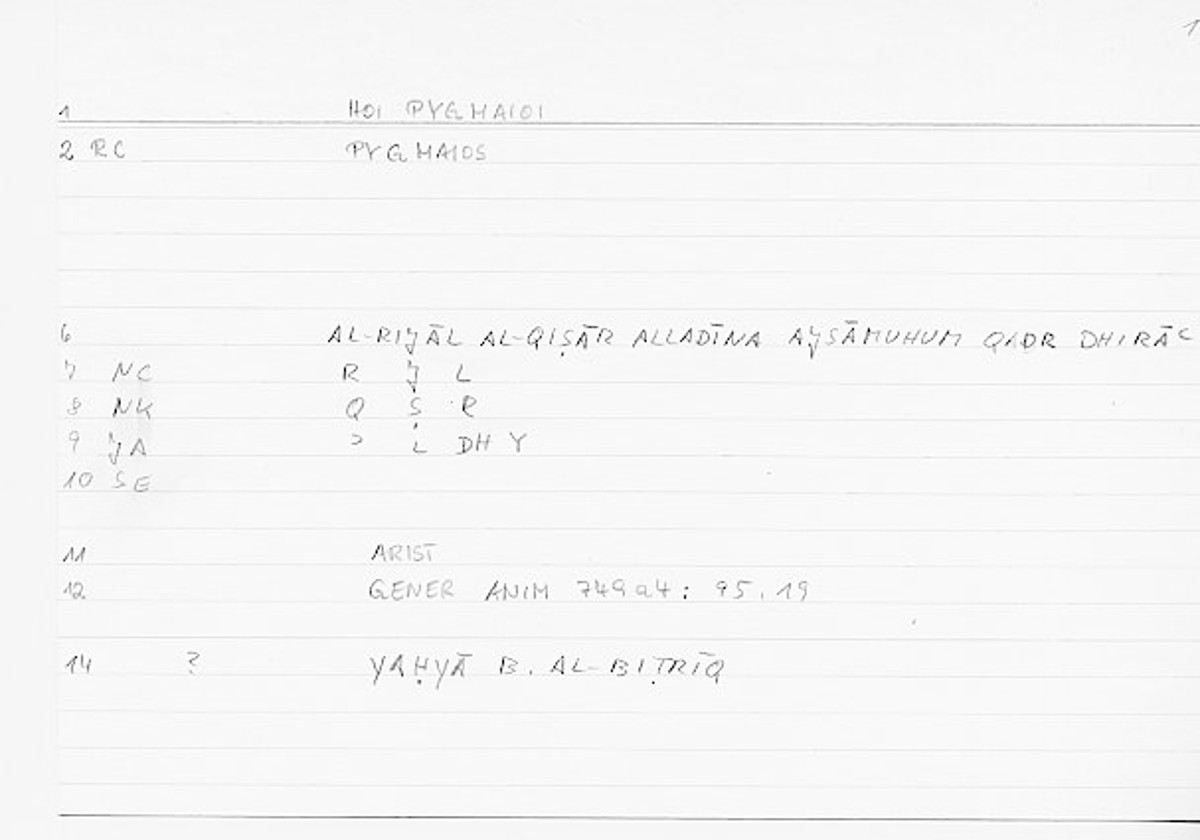 1
1 HOI PYGMAIOI
2 RC PYGMAIOS
6 AL-RIJĀL AL-QIṢĀR ALLADĪNA AJSĀMUHUM QADR DHIRĀC
7 NC R J L
8 NK Q Ṣ R
9 JA ɔ L DH Y
10 SE
11 ARIST
12 GENER ANIM 749a4: 95.19
14 ? YAḤYĀ B. AL-BIṬRĪQ